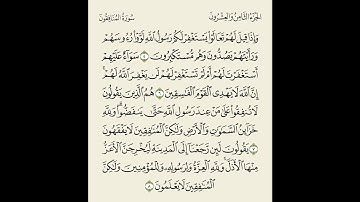 الجزء الثامن والعشرون سورة المنافقون
وَإِذَا قِيلَ لَهُمْ تَعَالَوْا۟ يَسْتَغْفِرْ لَكُمْ رَسُولُ ٱللَّهِ لَوَّوْا۟ رُءُوسَهُمْ
وَرَأَيْتَهُمْ يَصُدُّونَ وَهُم مُّسْتَكْبِرُونَ ٥ سَوَآءٌ عَلَيْهِمْ
أَسْتَغْفَرْتَ لَهُمْ أَمْ لَمْ تَسْتَغْفِرْ لَهُمْ لَن يَغْفِرَ ٱللَّهُ لَهُمْ
إِنَّ ٱللَّهَ لَا يَهْدِى ٱلْقَوْمَ ٱلْفَـٰسِقِينَ ٦ هُمُ ٱلَّذِينَ يَقُولُونَ
لَا تُنفِقُوا۟ عَلَىٰ مَنْ عِندَ رَسُولِ ٱللَّهِ حَتَّىٰ يَنفَضُّوا۟ وَلِلَّهِ
خَزَآئِنُ ٱلسَّمَـٰوَٰتِ وَٱلْأَرْضِ وَلَـٰكِنَّ ٱلْمُنَـٰفِقِينَ لَا يَفْقَهُونَ
٧ يَقُولُونَ لَئِن رَّجَعْنَآ إِلَى ٱلْمَدِينَةِ لَيُخْرِجَنَّ ٱلْأَعَزُّ
مِنْهَا ٱلْأَذَلَّ وَلِلَّهِ ٱلْعِزَّةُ وَلِرَسُولِهِۦ وَلِلْمُؤْمِنِينَ وَلَـٰكِنَّ
ٱلْمُنَـٰفِقِينَ لَا يَعْلَمُونَ ٨